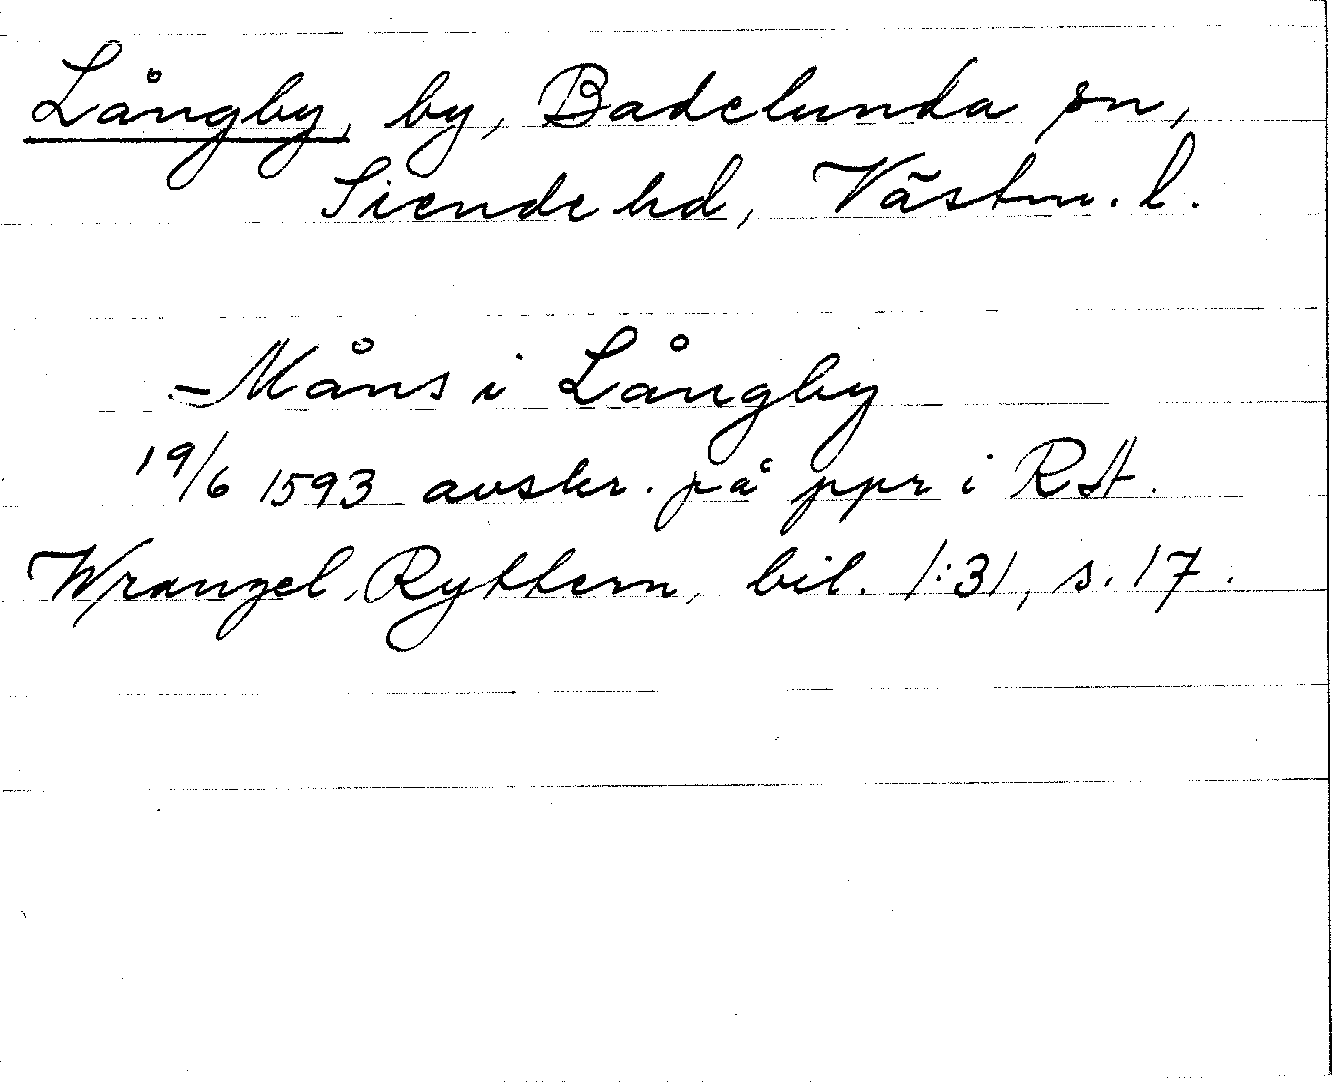 Långby, by, Badelunda sn,
Siende hd, Västm. l.
- Måns i Långby
19/6 1593 avskr. på ppr i RA.
Wrangel, Ryttern, bil. 1:31, s. 17.